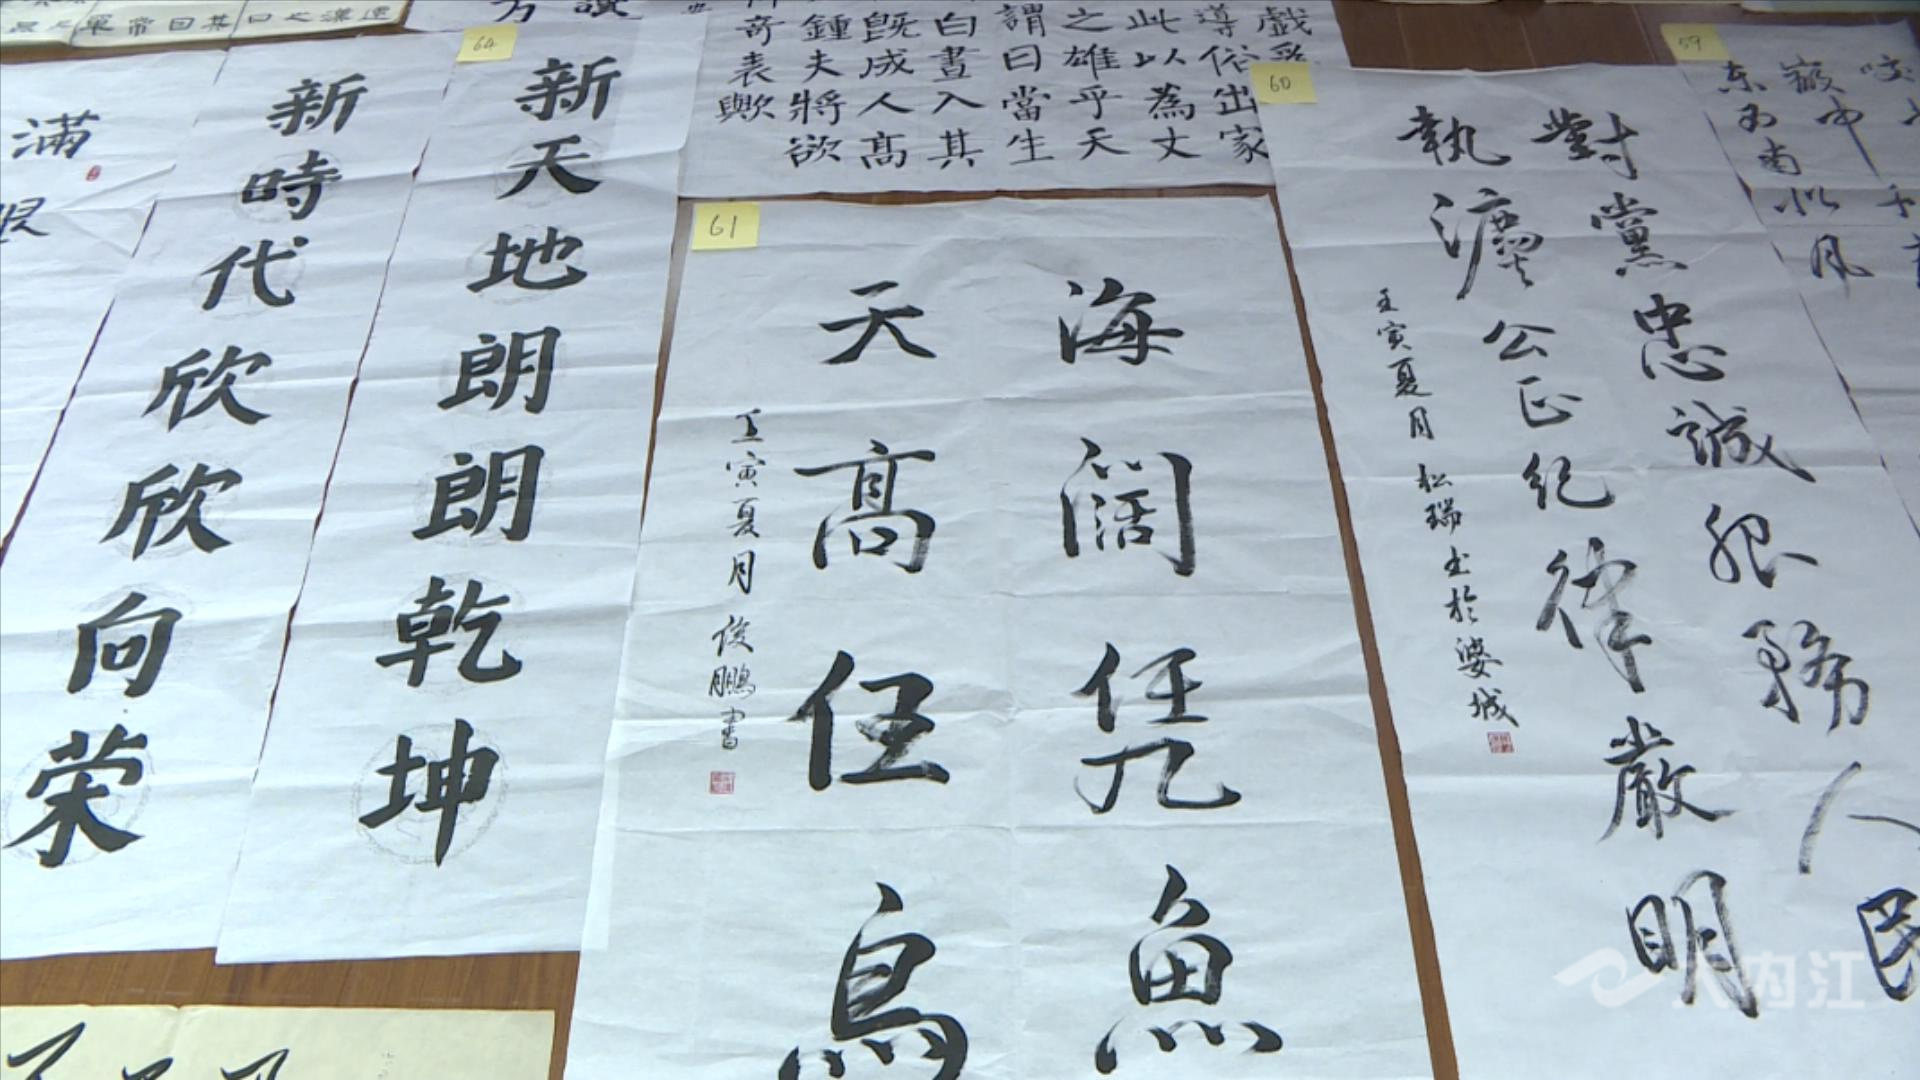 64
新天地朗朗乾坤
新時代欣欣向荣
满
61
海阔任凭魚
天高任鳥
壬寅夏月 俊鹏書
60
對黨忠誠服務人民
執灋公正纪律嚴明
壬寅夏月 松瑞书於婺城
59
戲
導俗出家
此以為丈
之雄乎天
謂曰當生
白晝入其
既成人髙
鍾夫將欲
奇表歟
東
南
似风
中
大内江